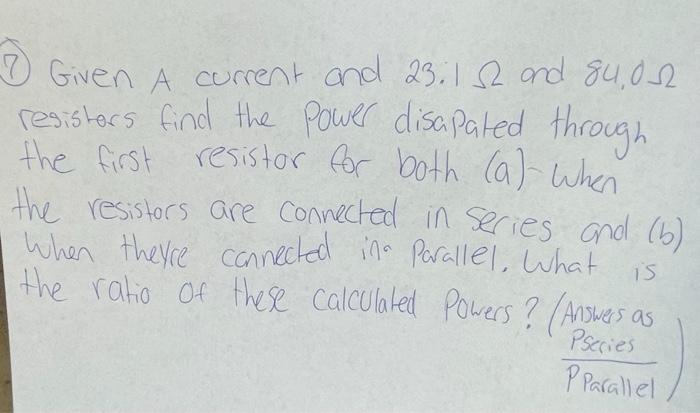 7 Given A current and 23.1 Ω and 84.0 Ω
resistors find the Power disapated through
the first resistor for both (a)-when
the resistors are connected in series and (b)
When theyre connected in Parallel. What is
the ratio of these calculated Powers? (Answers as
Pseries
P Parallel)